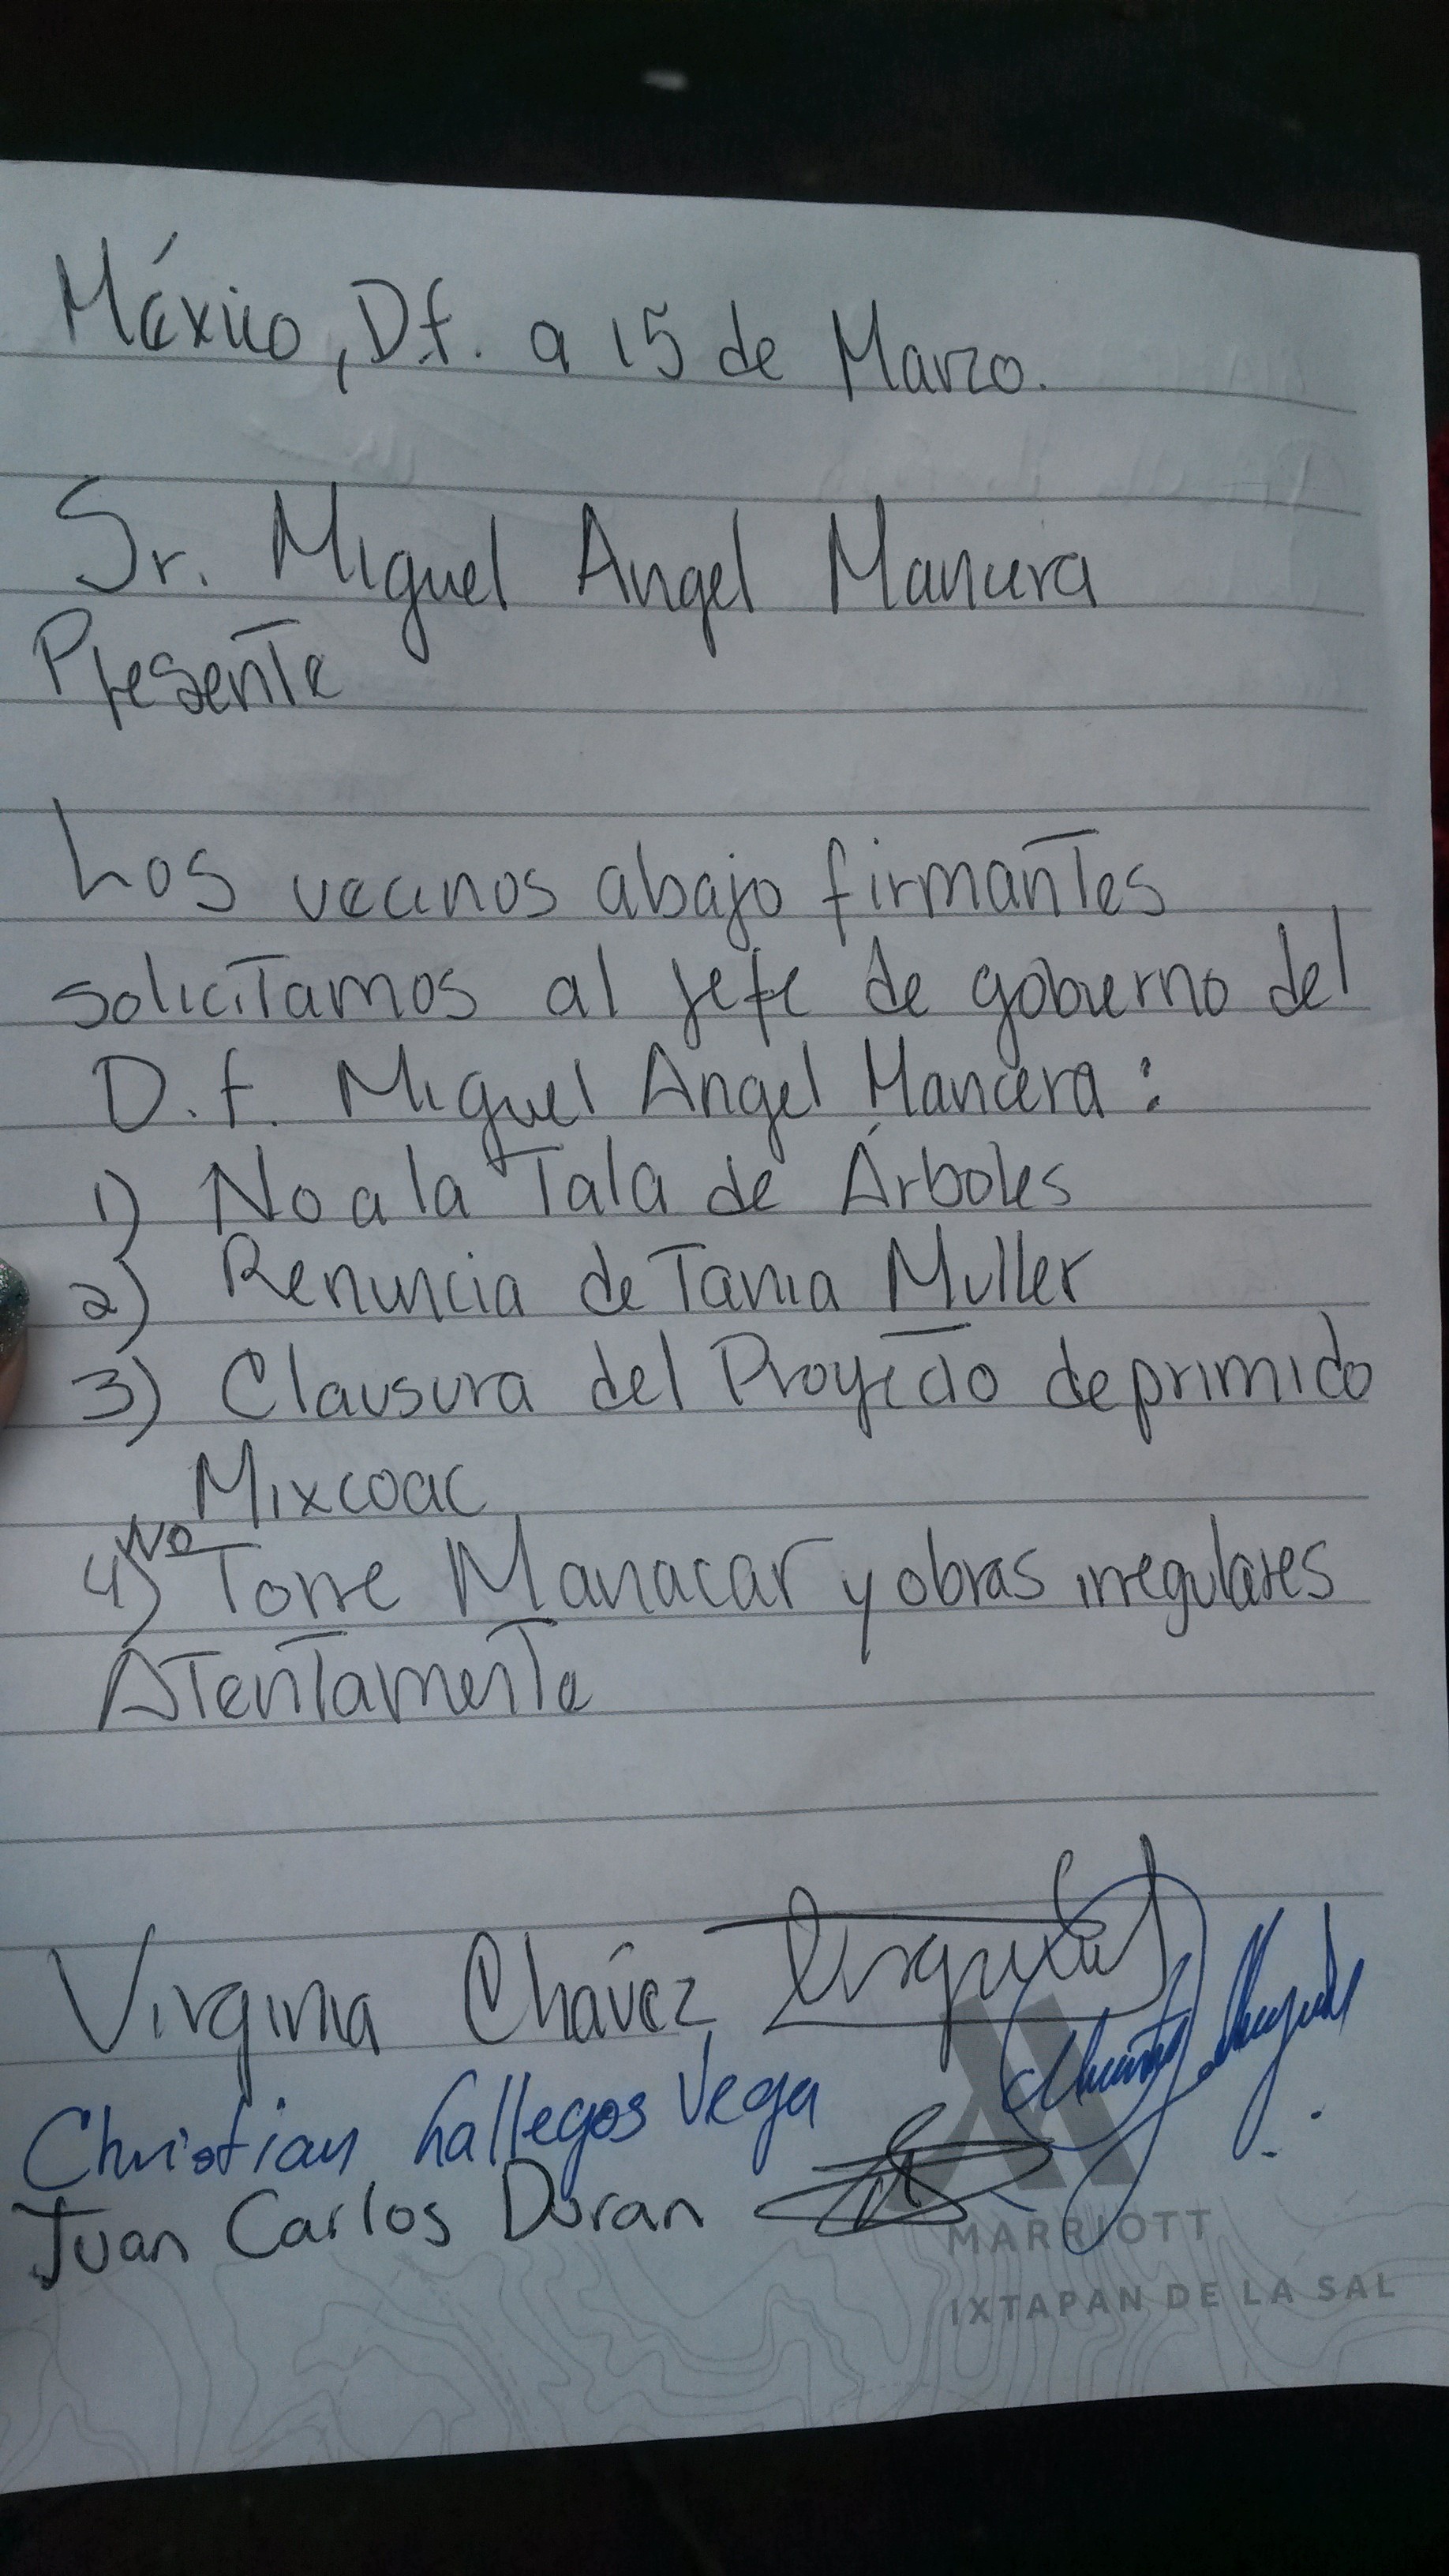 México, D.f. a 15 de Marzo.
Sr. Miguel Angel Mancera
Presente
Los vecinos abajo firmantes
solicitamos al jefe de gobierno del
D.f. Miguel Angel Mancera:
1) No a la Tala de Árboles
2) Renuncia de Tania Muller
3) Clausura del Proyecto deprimido
Mixcoac
4) NO Torre Manacar y obras irregulares
Atentamente
Virginia Chávez
Christian Gallegos Vega
Juan Carlos Duran
MARRIOTT
IXTAPAN DE LA SAL